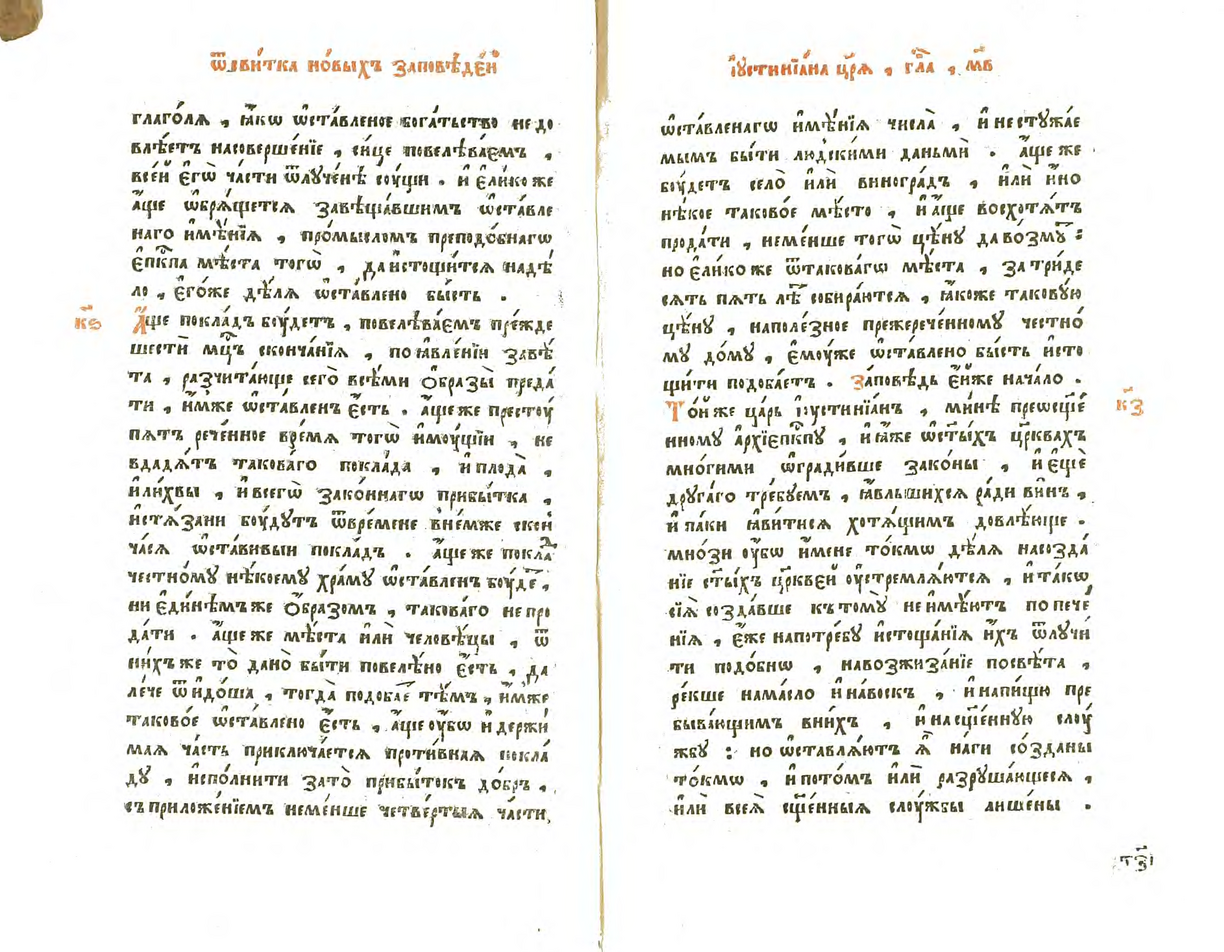 ѿсви́тка но́выхъ за́повѣде́й
глаго́ля , ꙗ҆́кѡ ѡ҆ста́вленое бога́тьство не до
влѣ́етъ насоверше́нїе , си́це повелѣва́емъ ,
все́й є҆гѡ̀ ча́сти ѿлу́ченѣ соу́щи . и҆ є҆ли́ко же
а҆́ще ѡ҆бря́щетсѧ завѣща́вшимъ ѡ҆ста́вле
наго и҆мѣ́нїѧ , про́мысломъ преподо́бнагѡ
є҆пⷭ҇кпа мѣ́ста тогѡ̀ , да и҆стощи́тсѧ на дѣ́
ло , є҆го́же дѣ́лѧ ѡ҆ста́влено бы́сть .
к҃ѕ
А҆́ще покла́дъ боу́детъ , повелѣва́емъ пре́жде
шести́ мц҃ъ сконча́нїѧ , по ꙗ҆вле́нїи завѣ́
та , разчита́юще сего̀ всѣ́ми о҆́бразы преда́
ти , и҆̀мже ѡ҆ста́вленъ є҆́сть . а҆́ще же престоу́
пѧтъ рече́нное вре́мѧ тогѡ̀ и҆моу́щїи , не
вдадѧ́тъ такова́го покла́да , и҆ плода̀ ,
и҆ ли́хвы , и҆ всегѡ̀ зако́ннагѡ прибы́тка ,
и҆стѧ́зани боу́дутъ ѿ вре́мене в не́мже скон
ча́сѧ ѡ҆ста́вивыи покла́дъ . а҆́ще же покла́ⷣ
честно́му нѣ́коему хра́му ѡ҆ста́вленъ боу́деⷮ ,
ни є҆ди́нѣмъ же о҆́бразомъ , такова́го не про
да́ти . а҆́ще же мѣ́ста и҆лѝ человѣ́цы , ѿ
ни́хъ же то̀ дано̀ бы́ти повелѣ́но є҆́сть , да
ле́че ѿидо́ша , тогда̀ подоба́еⷮ тѣ́мъ , и҆̀мже
таково́е ѡ҆ста́влено є҆́сть , а҆́ще оу҆́бѡ и҆ держи́
маѧ ча́сть приключа́етсѧ проти́внаѧ покла́
ду , и҆спо́лнити за то̀ прибы́токъ до́бръ ,
съ приложе́нїемъ неме́нше четве́ртыѧ ча́сти,
і҆устинїа́на цр҃ѧ , гл҃а , м҃в
ѡ҆ста́вленагѡ и҆мѣ́нїѧ числа̀ , и҆ не стужа́е
мымъ бы́ти людски́ми даньмѝ . а҆́ще же
боу́детъ село̀ и҆лѝ виногра́дъ , и҆лѝ и҆́но
нѣ́кое таково́е мѣ́сто , и҆ а҆́ще восхотѧ́тъ
прода́ти , неме́нше тогѡ̀ цѣ́ну да во́змуⷮ :
но є҆ли́ко же ѿ такова́гѡ мѣ́ста , за три́де
сѧть пѧть лѣⷮ собира́ютсѧ , ꙗ҆́коже такову́ю
цѣ́ну , наполе́зное прежерече́нному честно́
му до́му , є҆моу́же ѡ҆ста́влено бы́сть и҆сто
щи́ти подоба́етъ . За́повѣдь є҆́йже нача́ло .
То́й же ца́рь і҆устинїа́нъ , ми́нѣ прешсщ҃е́
нному а҆рхїепⷭ҇кпу , и҆ ꙗ҆́же ѡ҆ ст҃ы́хъ цр҃квахъ
мно́гими ѡ҆гради́вше зако́ны , и҆ є҆щѐ
к҃з
друга́го тре́буемъ , ꙗ҆́вльшихсѧ ра́ди ви́нъ ,
и҆ па́ки ꙗ҆ви́тисѧ хотѧ́щимъ довлѣ́юще .
мно́зи оу҆́бѡ и҆́мене то́кмѡ дѣ́лѧ на созда́
нїе ст҃ы́хъ цр҃кве́й оу҆стремлѧ́ютсѧ , и҆ та́кѡ
сїѧ̀ созда́вше к тому̀ не и҆мѣ́ютъ попече́
нїѧ , є҆́же на потре́бу и҆стоща́нїѧ и҆́хъ ѿлучи́
ти подо́бнѡ , на возжиза́нїе посвѣ́та ,
ре́кше на ма́сло и҆ на во́скъ , и҆ на пи́щю пре
быва́ющимъ в ни́хъ , и҆ на сщ҃е́нную слоу́
жбу : но ѡ҆ставлѧ́ютъ ѧ҆̀ на́ги со́зданы
то́кмѡ , и҆ пото́мъ и҆лѝ разруша́ющесѧ ,
и҆лѝ всеѧ̀ сщ҃е́нныѧ слоу́жбы лише́ны .
т҃з